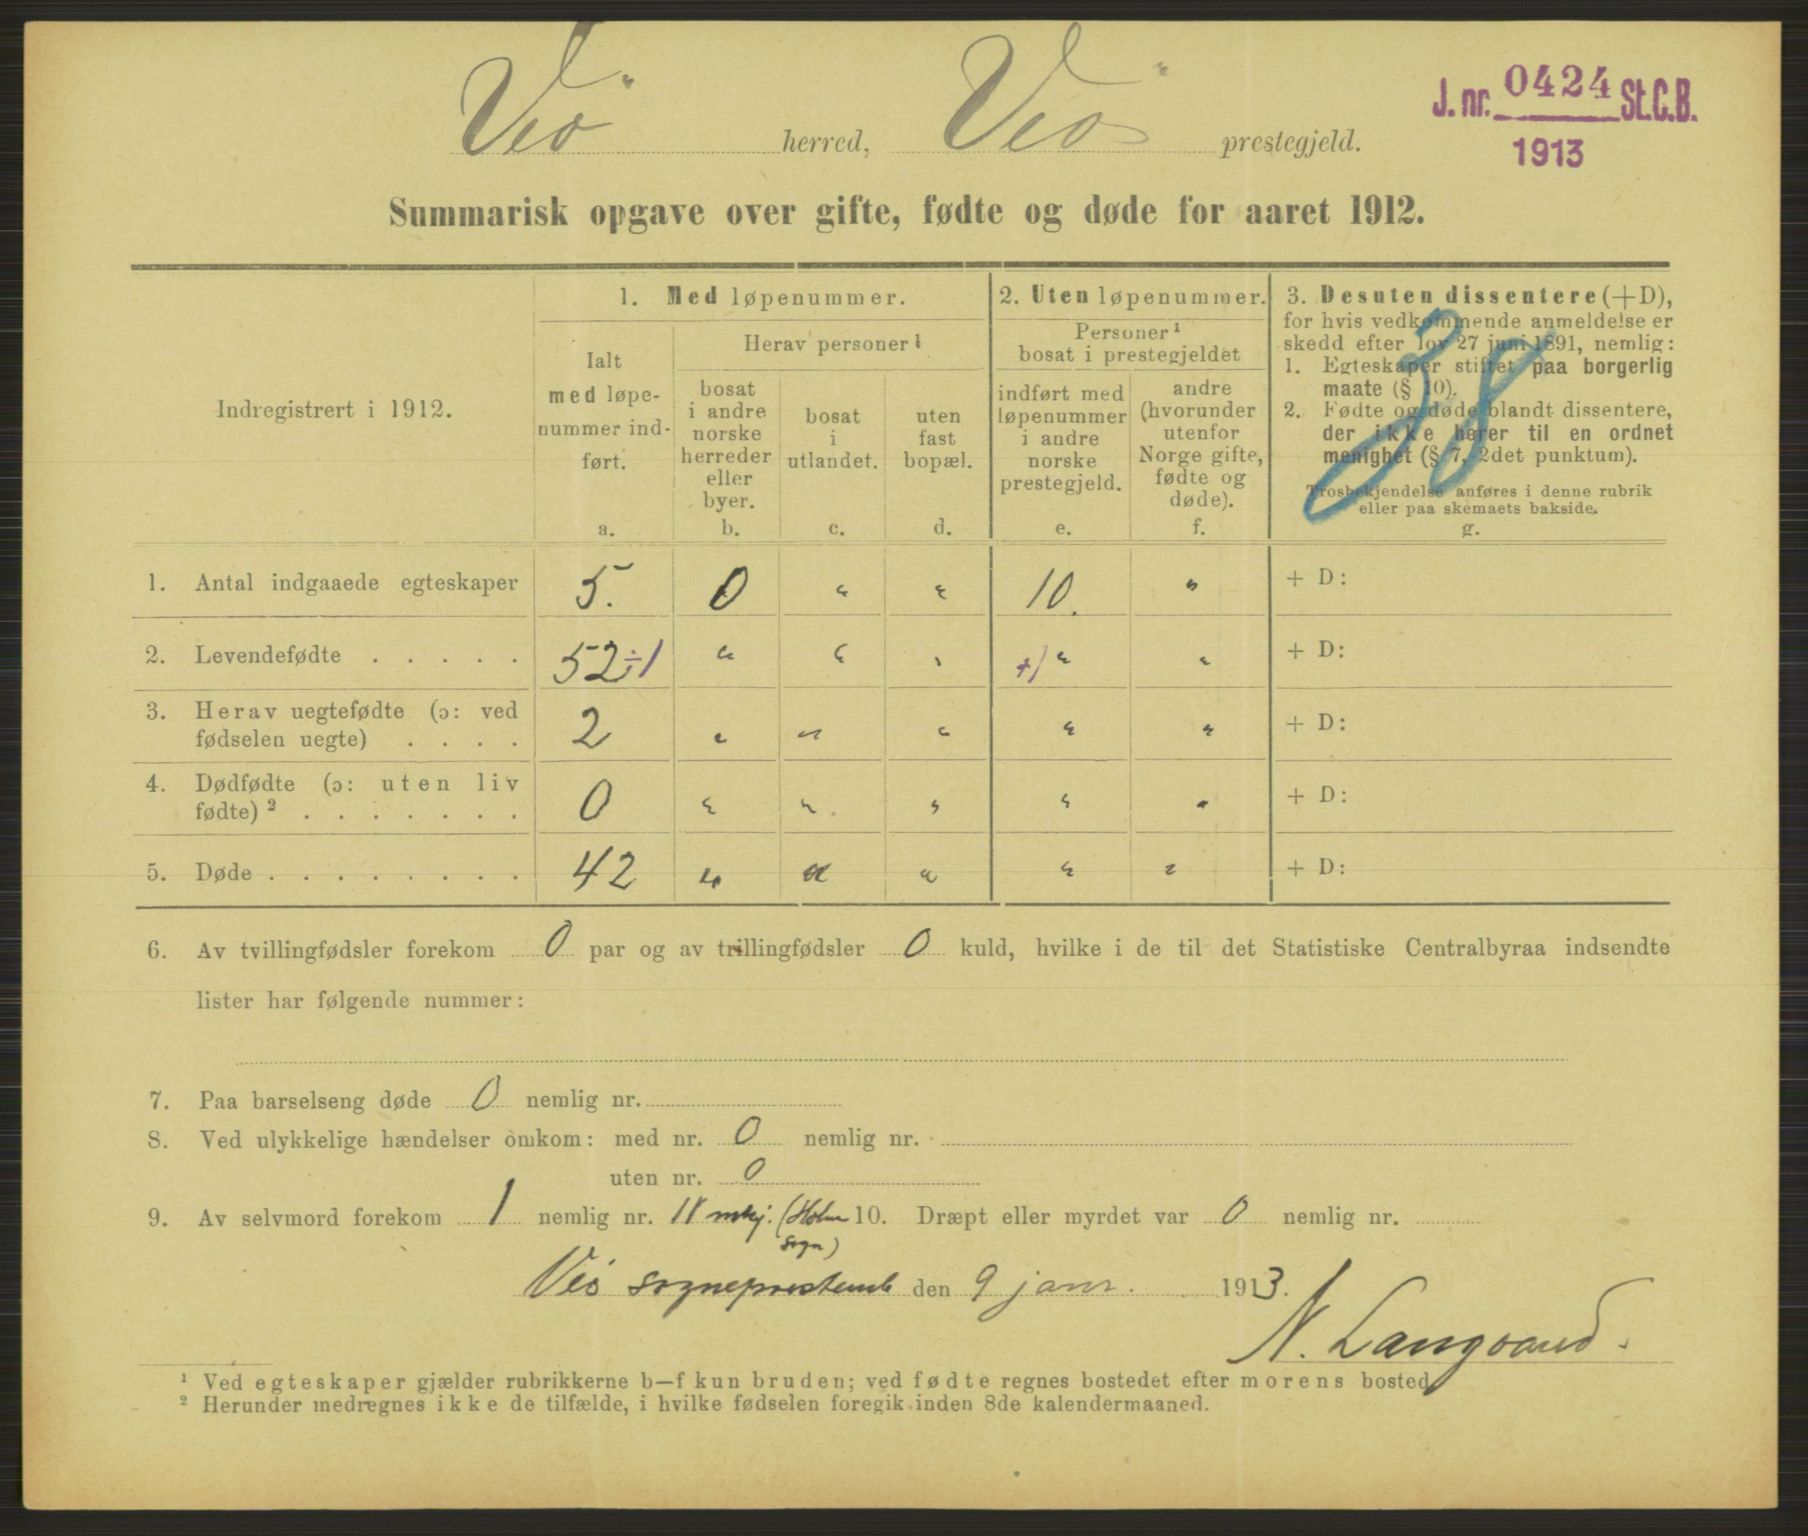 Veö herred, Veö prestegjeld.
J. nr. 0424 St.C.B.
1913
Summarisk opgave over gifte, fødte og døde for aaret 1912.
Indregistrert i 1912.
1. Med løpenummer.
Ialt
med løpe-
nummer ind-
ført.
a.
Herav personer¹
bosat
i andre
norske
herreder
eller
byer.
b.
bosat
i
utlandet.
c.
uten
fast
bopæl.
d.
2. Uten løpenummer.
Personer¹
bosat i prestegjeldet
indført med
løpenummer
i andre
norske
prestegjeld.
e.
andre
(hvorunder
utenfor
Norge gifte,
fødte og
døde).
f.
3. Desuten dissentere (+D),
for hvis vedkommende anmeldelse er
skedd efter lov 27 juni 1891, nemlig:
1. Egteskaper stiftet paa borgerlig
maate (§ 10).
2. Fødte og døde blandt dissentere,
der ikke hører til en ordnet
menighet (§ 7, 2det punktum).
Trosbekjendelse anføres i denne rubrik
eller paa skemaets bakside.
g.
38
1. Antal indgaaede egteskaper 5. 0 " " 10. " + D:
2. Levendefødte . . . . . 52÷1 " " " +1 " " + D:
3. Herav uegtefødte (ɔ: ved
fødselen uegte) . . . . 2 " " " " " + D:
4. Dødfødte (ɔ: uten liv
fødte)² . . . . . . . 0 " " " " " + D:
5. Døde . . . . . . . . 42 " " " " " + D:
6. Av tvillingfødsler forekom 0 par og av trillingfødsler 0 kuld, hvilke i de til det Statistiske Centralbyraa indsendte
lister har følgende nummer:
7. Paa barselseng døde 0 nemlig nr.
8. Ved ulykkelige hændelser omkom: med nr. 0 nemlig nr.
uten nr. 0
9. Av selvmord forekom 1 nemlig nr. 18 mkj. (Holm 10. Dræpt eller myrdet var 0 nemlig nr.
sogn)
Veö sogneprestemb den 9 janr. 1913.
N. Langsæued.
¹ Ved egteskaper gjælder rubrikkerne b—f kun bruden; ved fødte regnes bostedet efter morens bosted.
² Herunder medregnes ikke de tilfælde, i hvilke fødselen foregik inden 8de kalendermaaned.